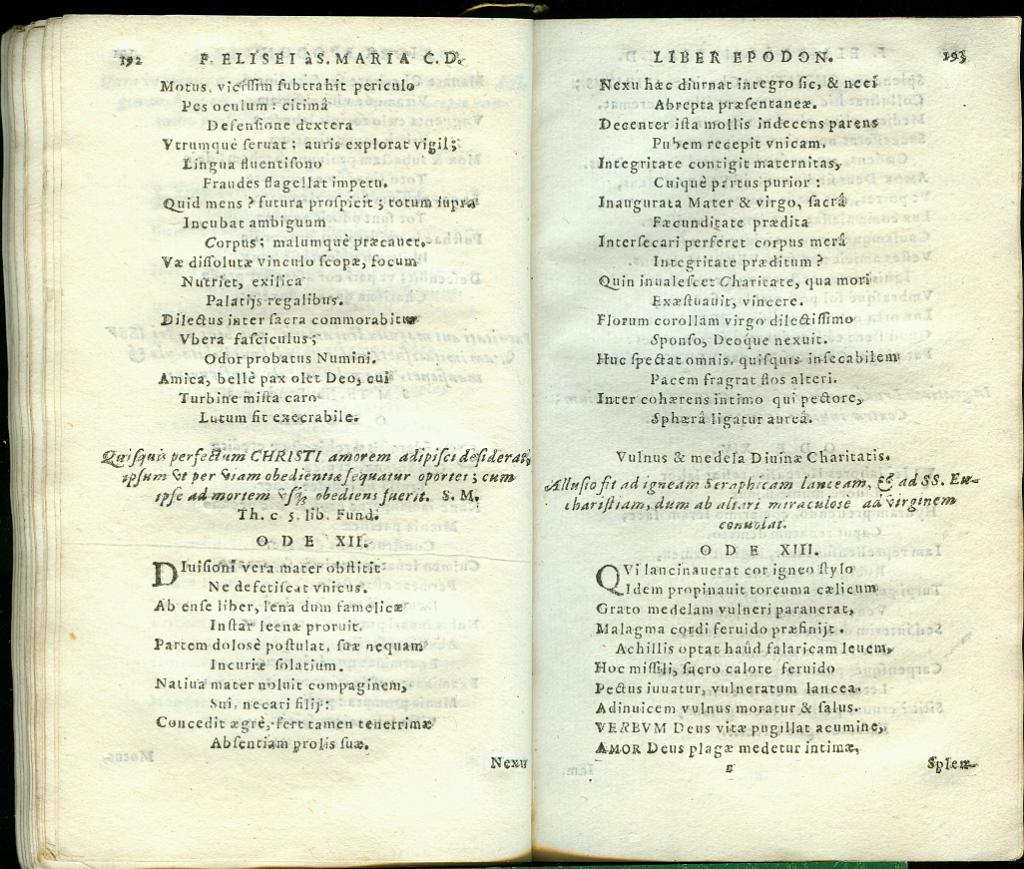 192 F. ELISEI àS. MARIA C. D.
Motus. vicissim subtrahit periculo
Pes oculum: citimâ
Defensione dextera
Vtrumquè seruat; auris explorat vigil;
Lingua fluentisono
Fraudes flagellat impetu.
Quid mens? futura prospicit; totum supra
Incubat ambiguum
Corpus; malumquè præcauet.
Væ dissolutæ vinculo scopæ, focum
Nutriet, exilica
Palatijs regalibus.
Dilectus inter sacra commorabitur
Vbera fasciculus;
Odor probatus Numini.
Amica, bellè pax olet Deo, cui
Turbine mista caro
Lutum sit execrabile.
Quisquis perfectum CHRISTI amorem adipisci desiderat,
ipsum vt per viam obedientiæ sequatur oportet; cum
ipse ad mortem vsq; obediens fuerit. S. M.
Th. c 5. lib. Fund.
ODE XII.
Diuisioni vera mater obstitit
Ne defetiscat vnicus.
Ab ense liber, lena dum famelicæ
Instar leenæ proruit.
Partem dolosè postulat, suæ nequam
Incuriæ solatium.
Natiua mater noluit compaginem,
Sui, necari filij:
Concedit ægrè, fert tamen tenerrimæ
Absentiam prolis suæ.
Nexu
LIBER EPODON. 193
Nexu hæc diurnat integro sic, & neci
Abrepta præsentaneæ.
Decenter ista mollis indecens parens
Pubem recepit vnicam.
Integritate contigit maternitas,
Cuiquè partus purior:
Inaugurata Mater & virgo, sacrâ
Fæcunditate prædita
Intersecari perferet corpus merâ
Integritate præditum?
Quin inualescet Charitate, qua mori
Exæstuauit, vincere.
Florum corollam virgo dilectissimo
Sponso, Deoque nexuit.
Huc spectat omnis. quisquis insecabilem
Pacem fragrat flos alteri.
Inter cohærens intimo qui pectore,
Sphærâ ligatur aureâ.
Vulnus & medela Diuinæ Charitatis.
Allusio fit ad igneam Seraphicam lanceam, & ad SS. Eu-
charistiam, dum ab altari miraculosè ad virginem
conuolat.
ODE XIII.
QVi lancinauerat cor igneo stylo
Idem propinauit toreuma cælicum
Grato medelam vulneri parauerat,
Malagma cordi feruido præfinijt.
Achillis optat haûd falaricam leuem,
Hoc missili, sacro calore feruido
Pectus iuuatur, vulneratum lancea.
Adinuicem vulnus moratur & salus.
VERBVM Deus vitæ pugillat acumine,
AMOR Deus plagæ medetur intimæ,
Splen-